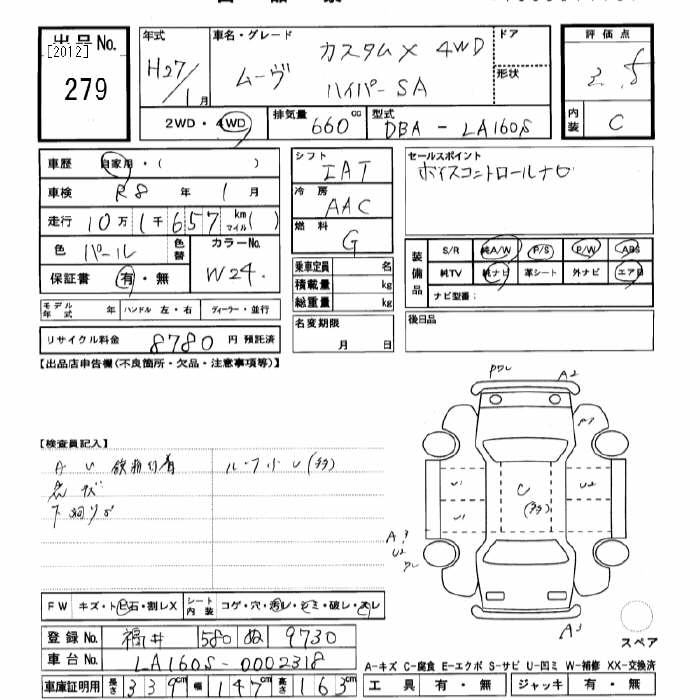 出品番号 No.
[2012]
279
年式
H27/1月
車名・グレード
ムーヴ
カスタムX 4WD
ハイパーSA
ドア
形状
評価点
内装
C
2WD・4WD
排気量
660cc
型式
DBA-LA160S
車歴
自家用・( )
車検
R8年1月
走行
10万1千657km(マイル)
色
パール
色替
カラーNo.
W24.
保証書
有・無
シフト
IAT
冷房
AAC
燃料
G
乗車定員 名
積載量 kg
総重量 kg
名変期限
月 日
セールスポイント
ボイスコントロールナビ
装備品
S/R 純A/W P/S P/W ABS
純TV 純ナビ 革シート 外ナビ エアB
ナビ型番:
後日品
モデル年式 年 ハンドル 左・右 ディーラー・並行
リサイクル料金 8780円 預託済
【出品店申告欄(不良箇所・欠品・注意事項等)】
【検査員記入】
AU鉄粉付着
ルーフ小U(多)
点サビ
下廻りS
ワレ
A2
U1
U1
C
(多)
U2
A3
U2
ワレ
A3
スペア
FW キズ・トビ石・割レX
シート内装 コゲ・穴・汚レ・シミ・破レ・スレ
登録No. 福井 580 ぬ 9730
車台No. LA160S-0002318
車庫証明用 長さ 339cm 幅 147cm 高さ 163cm
A-キズ C-腐食 E-エクボ S-サビ U-凹ミ W-補修 XX-交換済
工具 有・無 ジャッキ 有・無